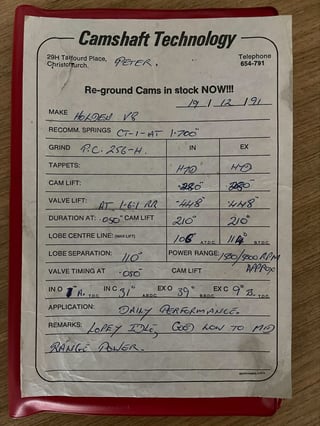 Camshaft Technology
29H Tattourd Place, Telephone
Christchurch. PETER. 654-791
Re-ground Cams in stock NOW!!!
19 1 12 1 91
MAKE HOLDEN V8
RECOMM. SPRINGS CT-1-AT 1·700"
GRIND P.C. 256-H. IN EX
TAPPETS: HYD HYD
CAM LIFT: ·280" ·280"
VALVE LIFT: AT 1·6:1 RR ·448" ·448"
DURATION AT: ·050" CAM LIFT 210° 210°
LOBE CENTRE LINE: (MAX LIFT) 106 A.T.D.C. 114° B.T.D.C.
LOBE SEPARATION: 110° POWER RANGE: RPM
VALVE TIMING AT ·050" CAM LIFT APPROX
IN O 1° A. T.D.C. IN C 31° A.B.D.C. EX O 39° B.B.D.C. EX C 9° B. T.D.C.
APPLICATION: DAILY PERFORMANCE.
REMARKS: LOPEY IDLE, GOOD LOW TO MID
RANGE POWER.